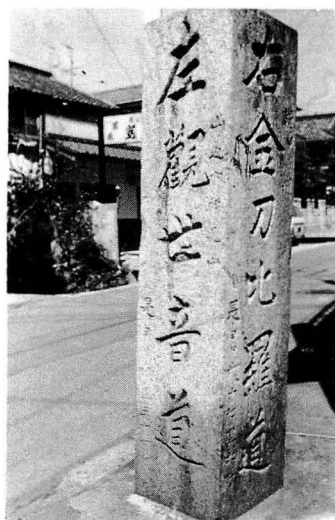 右金刀比羅道
左觀世音道